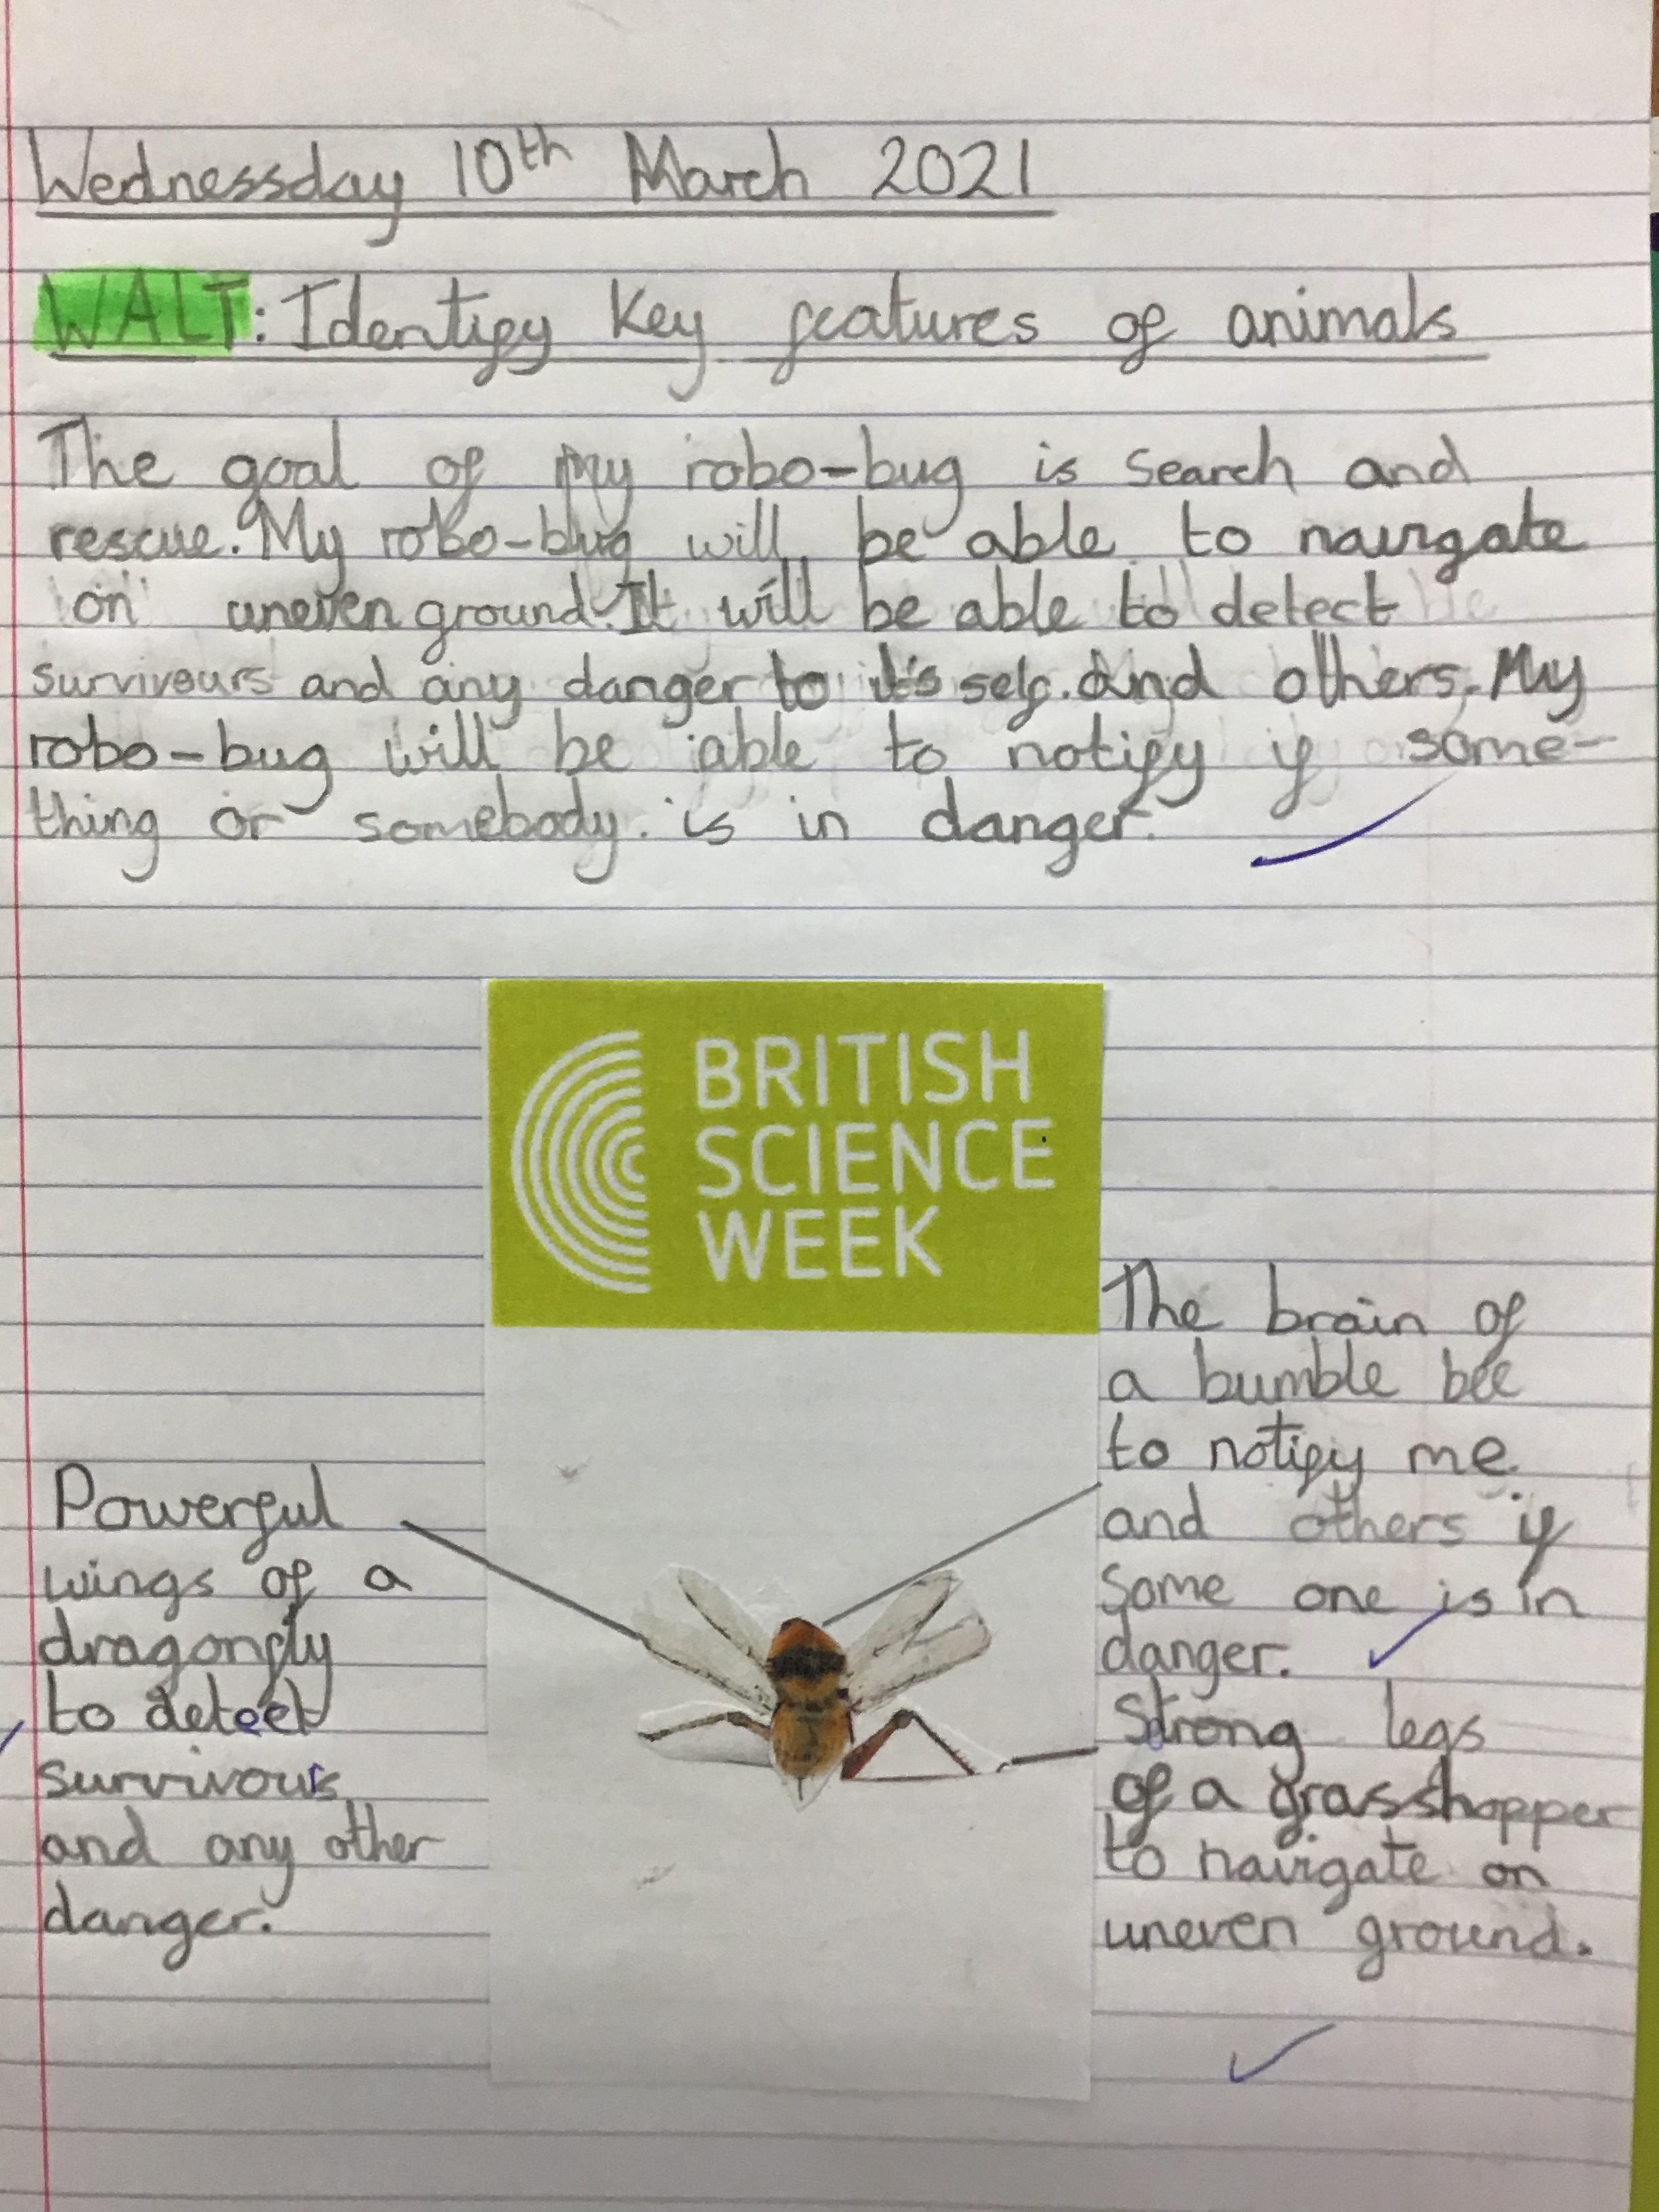 Wednessday 10th March 2021
WALT: Identify Key features of animals
The goal of my robo-bug is search and
rescue. My robo-bug will be able to navigate
on uneven ground. It will be able to detect
surviveours and any danger to it's self. And others. My
robo-bug will be able to notify if some-
thing or somebody is in danger.
BRITISH
SCIENCE
WEEK
Powerful
wings of a
dragonfly
to detect
survivours
and any other
danger.
The brain of
a bumble bee
to notify me
and others if
some one is in
danger.
Strong legs
of a grasshopper
to navigate on
uneven ground.